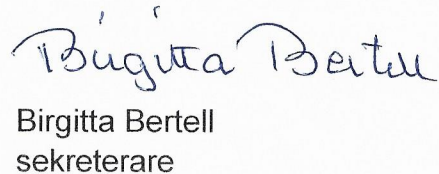 Birgitta Bertell
Birgitta Bertell
sekreterare